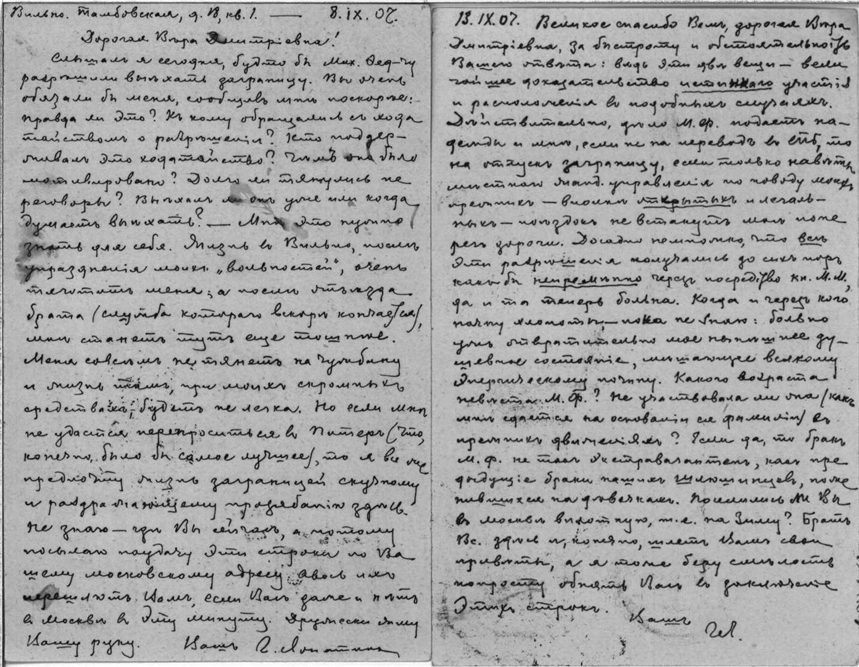 Вильно. Тамбовская, д. 8, кв. 1. — 8. IX. 07.
Дорогая Вѣра Дмитріевна!
Слышалъ я сегодня, будто бы Мих. Фед-чу
разрѣшили выѣхать заграницу. Вы очень
обязали бы меня, сообщивъ мнѣ поскорѣе:
правда ли это? Къ кому обращались съ хода
тайствомъ о разрѣшеніи? Кто поддер-
живалъ это ходатайство? Чѣмъ оно было
мотивировано? Долго ли тянулись пе
реговоры? Выѣхалъ ли онъ уже или когда
думаетъ выѣхать? — Мнѣ это нужно
знать для себя. Жизнь въ Вильно, послѣ
упраздненія моихъ „вольностей“, очень
тяготитъ меня; а послѣ отъѣзда
брата (служба котораго вскорѣ кончается),
мнѣ станетъ тутъ еще тошнѣе.
Меня совсѣмъ не тянетъ на чужбину
и жизнь тамъ, при моихъ скромныхъ
средствахъ, будетъ не легка. Но если мнѣ
не удастся перепроситься въ Питеръ (что,
конечно, было бы самое лучшее), то я все же
предпочту жизнь заграницей скучному
и раздражающему прозябанію здѣсь.
Не знаю — гдѣ Вы сейчасъ, а потому
посылаю наудачу эти строки по Ва
шему московскому адресу авось ихъ
перешлютъ Вамъ, если Васъ даже и нѣтъ
въ Москвѣ въ эту минуту. Дружески жму
Вашу руку. Вашъ Г. Лопатинъ
13. IX. 07. Великое спасибо Вамъ, дорогая Вѣра
Дмитріевна, за быстроту и обстоятельность
Вашего отвѣта: вѣдь эти двѣ вещи — вели
чайшее доказательство истиннаго участія
и расположенія въ подобныхъ случаяхъ.
Дѣйствительно, дѣло М. Ф. подаетъ на-
дежды и мнѣ, если не на переводъ въ СПб, то
на отпускъ заграницу, если только навѣты
мѣстнаго жанд. управленія по поводу моихъ
прежнихъ — вполнѣ открытыхъ и легаль-
ныхъ — поѣздокъ не встанутъ мнѣ попе
регъ дороги. Досадно немножко, что всѣ
эти разрѣшенія получались до сихъ поръ
какъ бы непремѣнно черезъ посредство кн. М. М.,
да и та теперь больна. Когда и черезъ кого
начну хлопоты — пока не знаю: больно
ужъ отвратительно мое нынѣшнее ду-
шевное состояніе, мѣшающее всякому
энергическому почину. Какого возраста
невѣста М. Ф.? Не участвовала ли она (какъ
мнѣ сдается на основаніи ея фамиліи) въ
прежнихъ движеніяхъ? Если да, то бракъ
М. Ф. не такъ экстравагантенъ, какъ пре
дыдущіе браки нашихъ шлюшинцевъ, поже
нившихся на дѣвочкахъ. Поселились ли Вы
въ Москвѣ вплотную, т. е. на зиму? Братъ
Вс. здѣсь и, конечно, шлетъ Вамъ свои
привѣты, а я тоже беру смѣлость
попросту обнять Васъ въ заключеніе
этихъ строкъ.
Вашъ
ГЛ.